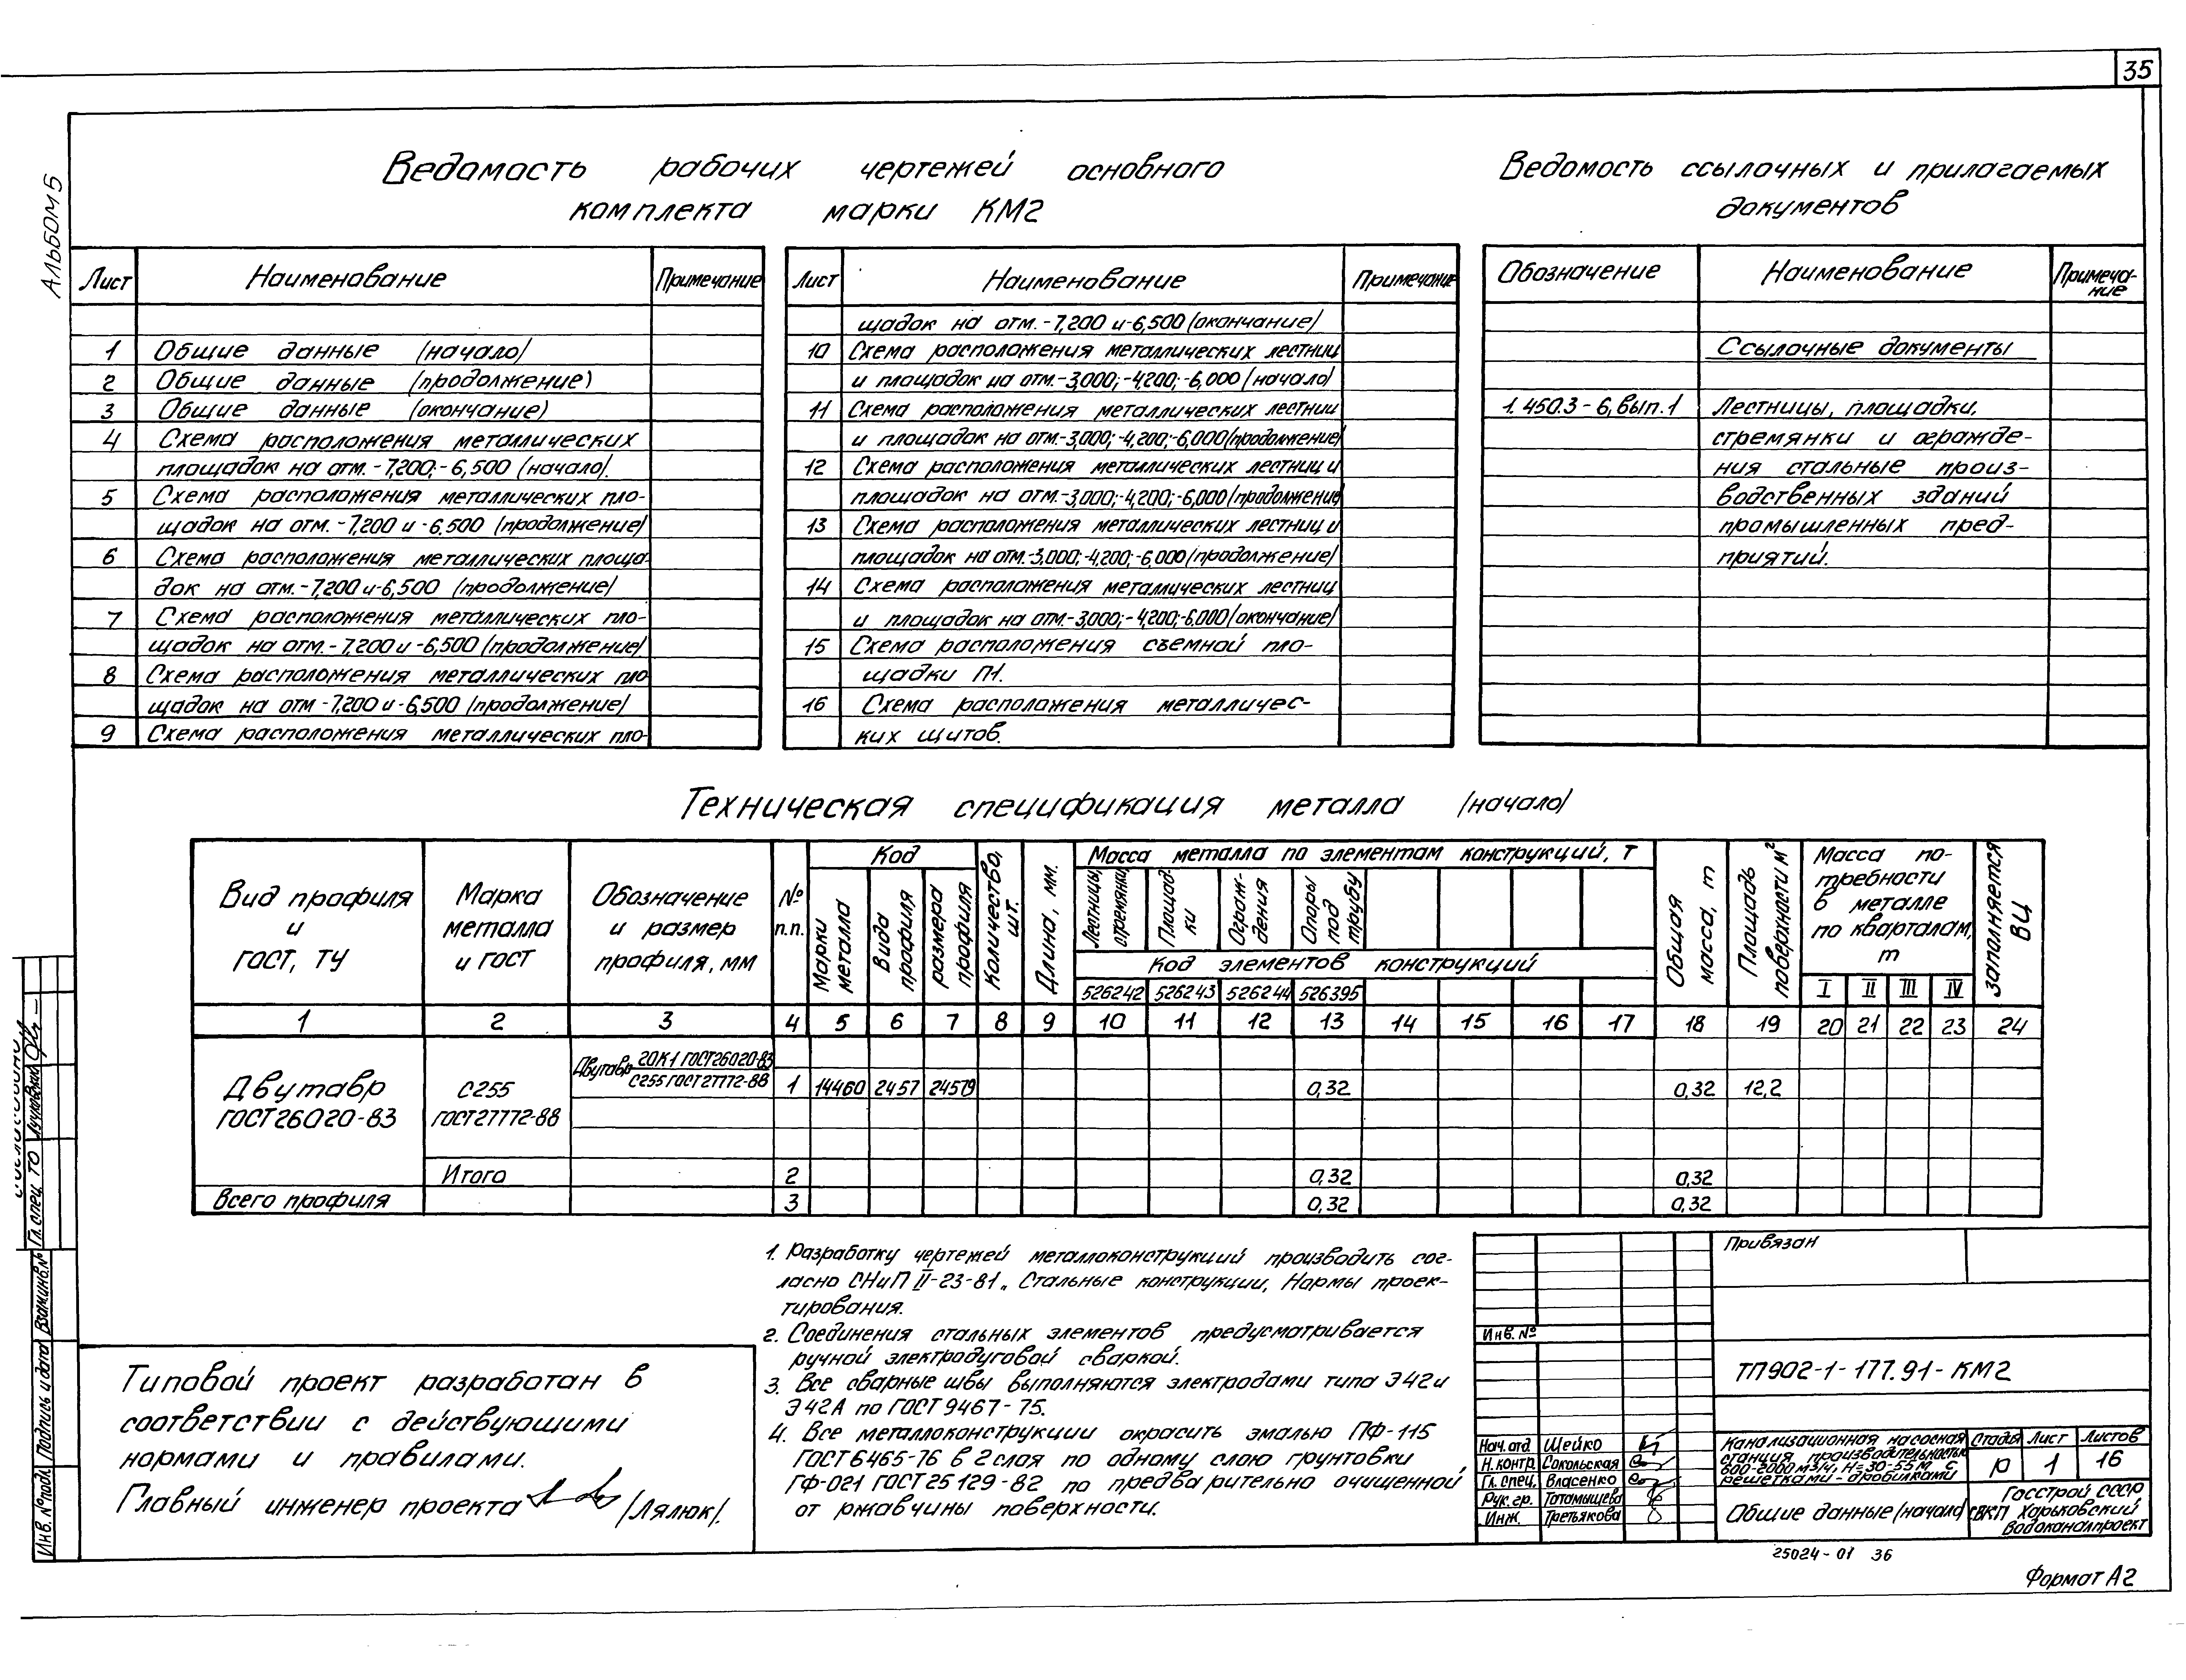 35
Альбом 5
Ведомость рабочих чертежей основного
комплекта марки КМ2
Лист Наименование Примечание
1 Общие данные (начало)
2 Общие данные (продолжение)
3 Общие данные (окончание)
4 Схема расположения металлических
площадок на отм. -7,200; -6,500 (начало).
5 Схема расположения металлических пло-
щадок на отм. -7,200 и -6.500 (продолжение)
6 Схема расположения металлических площа-
док на отм. -7,200 и -6,500 (продолжение)
7 Схема расположения металлических пло-
щадок на отм. -7,200 и -6,500 (продолжение)
8 Схема расположения металлических пло
щадок на отм -7,200 и -6,500 (продолжение)
9 Схема расположения металлических пло-
Лист Наименование Примечание
щадок на отм. -7,200 и -6,500 (окончание)
10 Схема расположения металлических лестниц
и площадок на отм. -3,000; -4,200; -6,000 (начало)
11 Схема расположения металлических лестниц
и площадок на отм. -3,000; -4,200; -6,000 (продолжение)
12 Схема расположения металлических лестниц и
площадок на отм. -3,000; -4,200; -6,000 (продолжение
13 Схема расположения металлических лестниц и
площадок на отм. -3,000; -4,200; -6,000 (продолжение)
14 Схема расположения металлических лестниц
и площадок на отм. -3,000; -4,200; -6,000 (окончание)
15 Схема расположения съемной пло-
щадки П1.
16 Схема расположения металличес-
ких щитов.
Ведомость ссылочных и прилагаемых
документов
Обозначение Наименование Примеча-
ние
Ссылочные документы
1.450.3-6, вып.1 Лестницы, площадки,
стремянки и огражде-
ния стальные произ-
водственных зданий
промышленных пред-
приятий.
Техническая спецификация металла (начало)
Вид профиля
и
ГОСТ, ТУ
Марка
металла
и ГОСТ
Обозначение
и размер
профиля, мм
№
п.п.
Код
Марки
металла
Вида
профиля
размера
профиля
Количество,
шт.
Длина, мм.
Масса металла по элементам конструкций, т
Лестницы,
стремянки
Площад-
ки
Ограж-
дения
Опоры
под
трубу
Код элементов конструкций
526242 526243 526244 526395
Общая
масса, т
Площадь
поверхности м²
Масса по-
требности
в металле
по кварталам,
т
I II III IV
заполняется
ВЦ
1 2 3 4 5 6 7 8 9 10 11 12 13 14 15 16 17 18 19 20 21 22 23 24
Двутавр 20К1 ГОСТ26020-83
С255 ГОСТ27772-88
Двутавр С255 1 14460 2457 24579 0,32 0,32 12,2
ГОСТ26020-83 ГОСТ27772-88
Итого 2 0,32 0,32
Всего профиля 3 0,32 0,32
1. Разработку чертежей металлоконструкций производить сог-
ласно СНиП II-23-81 „ Стальные конструкции, Нормы проек-
тирования.
2. Соединения стальных элементов предусматривается
ручной электродуговой сваркой.
3. Все сварные швы выполняются электродами типа Э42 и
Э42А по ГОСТ 9467-75.
4. Все металлоконструкции окрасить эмалью ПФ-115
ГОСТ 6465-76 в 2 слоя по одному слою грунтовки
ГФ-021 ГОСТ 25129-82 по предварительно очищенной
от ржавчины поверхности.
Типовой проект разработан в
соответствии с действующими
нормами и правилами.
Главный инженер проекта /Лялюк/.
Гл. спец. ТО
Инв. № подл. Подпись и дата Взам.инв.№
Привязан
Инв. №
ТП902-1-177.91-КМ2
Нач. отд Шейко
Н. контр Сокольская
Гл. спец. Власенко
Рук. гр. Татомышева
Инж. Третьякова
Канализационная насосная
станция производительностью
600-2000 м3/ч, Н=30-55 м с
решетками-дробилками
Стадия Лист Листов
Р 1 16
Общие данные (начало)
Госстрой СССР
СВКП Харьковский
Водоканалпроект
25024-01 36
Формат А2